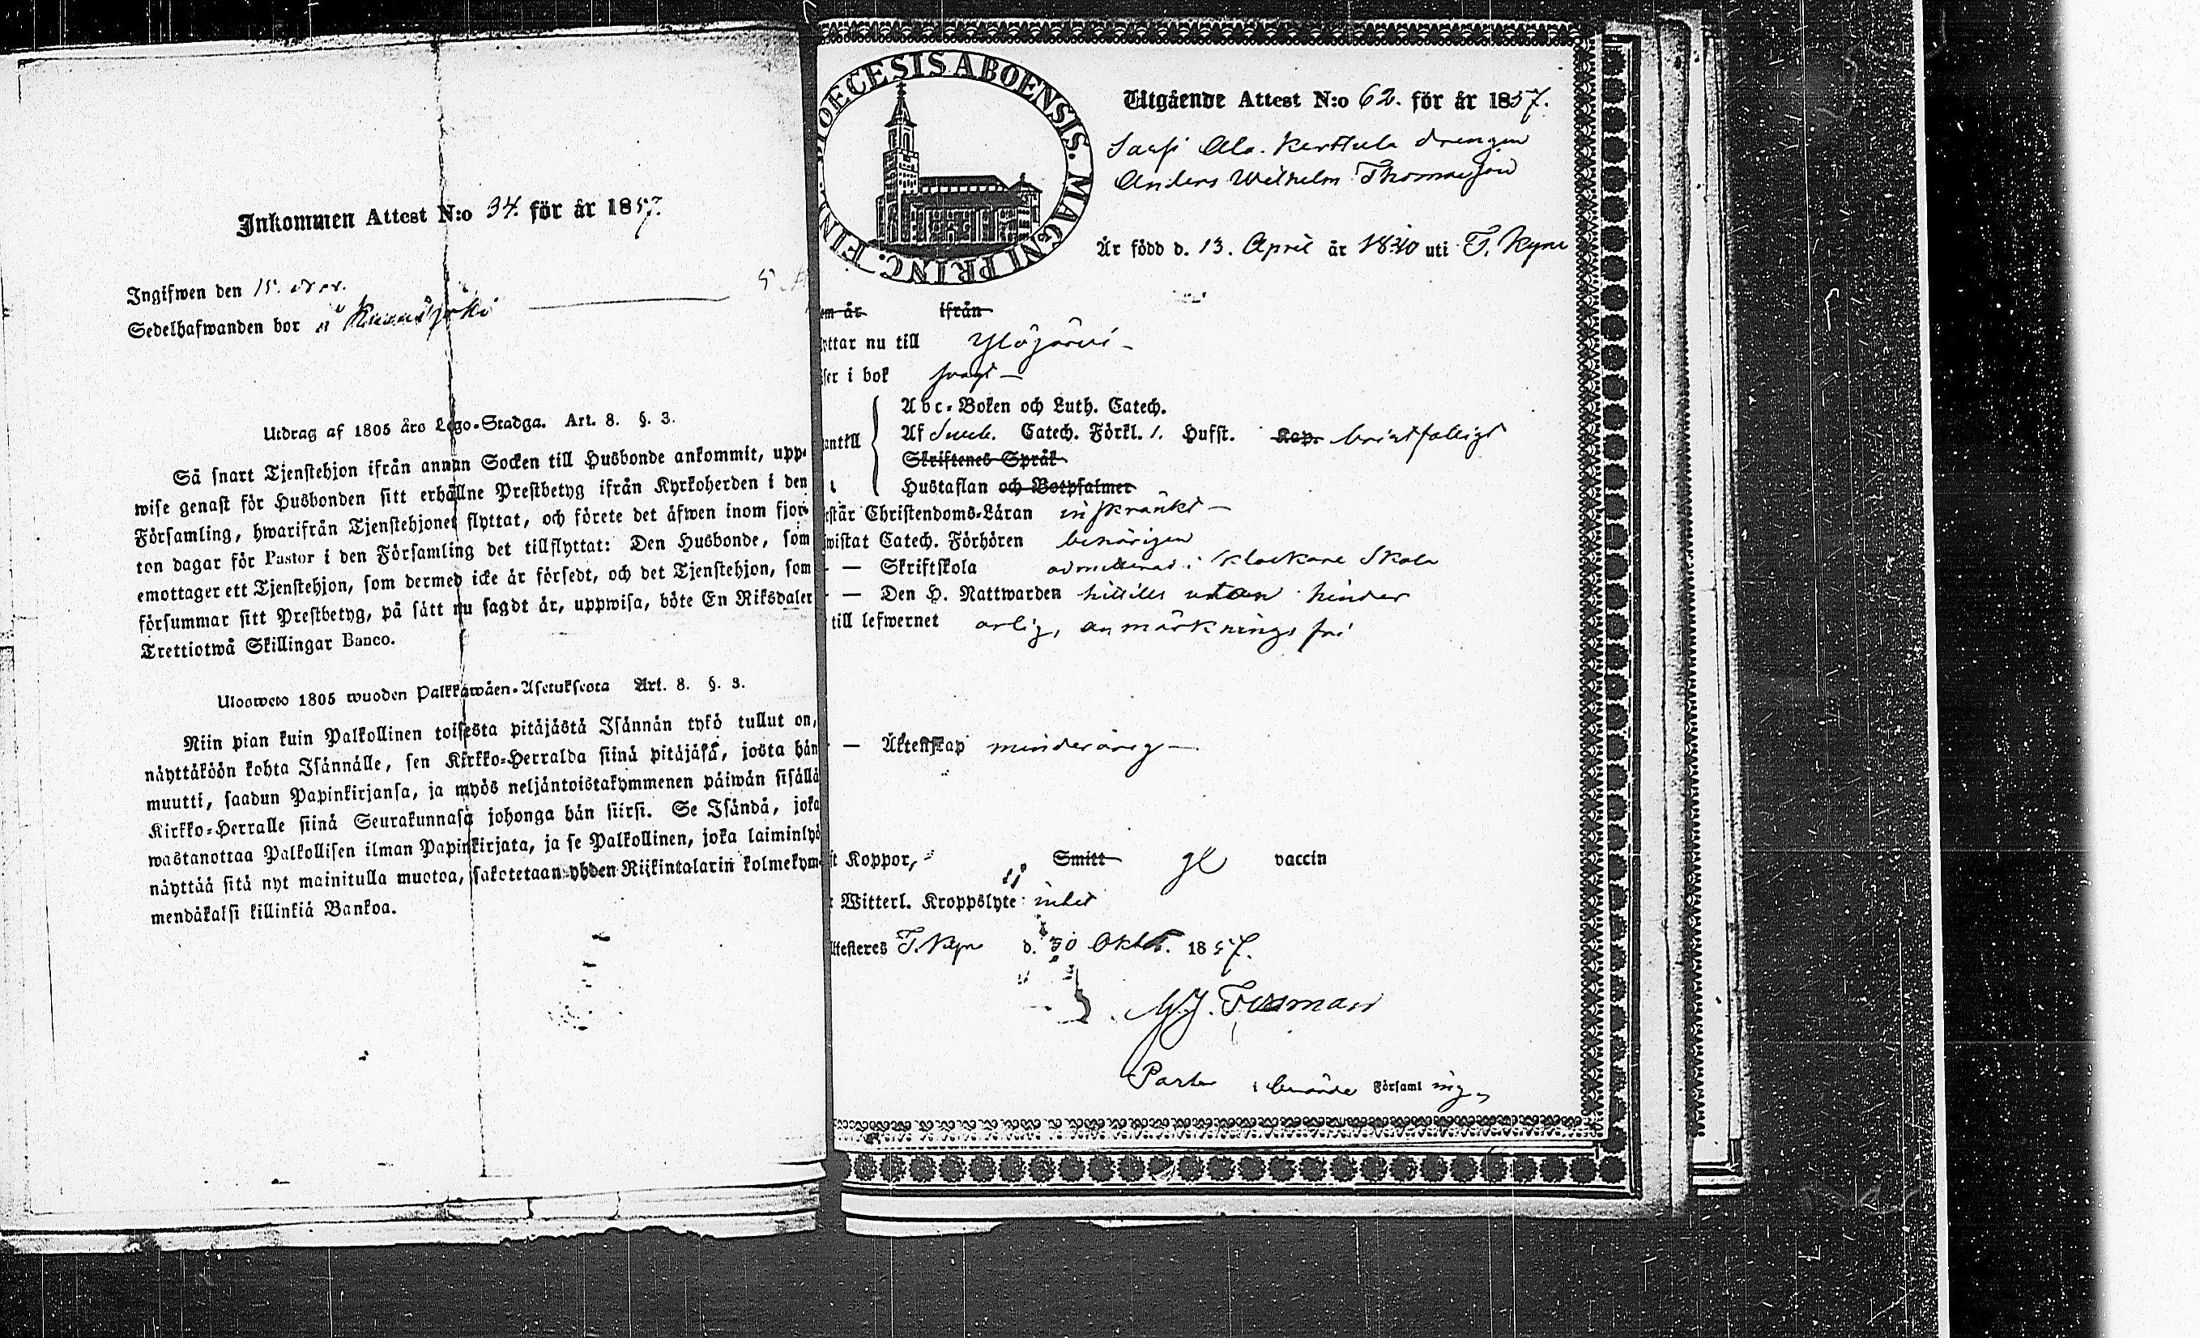 Inkommen Attest N:o 34. för år 1857.
Ingifwen den 15.
Sedelhafwanden bor
Utdrag af 1805 års Lego-Stadga. Art. 8. §. 3.
Så snart Tjenstehjon ifrån annan Socken till Husbonde ankommit, upp-
wise genast för Husbonden sitt erhållne Prestbetyg ifrån Kyrkoherden i den
Församling, hwarifrån Tjenstehjonet flyttat, och förete det äfwen inom fjor-
ton dagar för Pastor i den Församling det tillflyttat: Den Husbonde, som
emottager ett Tjenstehjon, som dermed icke är försedt, och det Tjenstehjon, som
försummar sitt Prestbetyg, på sätt nu sagdt är, uppwisa, böte En Riksdaler
Trettiotwå Skillingar Banco.
Ulosweto 1805 wuoden Palkkawäen-Asetuksesta Art. 8. §. 3.
Niin pian kuin Palkollinen toisesta pitäjästä Isännän tykö tullut on,
näyttäköön kohta Isännälle, sen Kirkko-Herralda siinä pitäjäsä, josta hän
muutti, saadun Papinkirjansa, ja myös neljäntoistakymmenen päiwän sisällä
Kirkko-Herralle siinä Seurakunnasa johonga hän siirsi. Se Isändä, joka
wastanottaa Palkollisen ilman Papinkirjata, ja se Palkollinen, joka laiminlyö
näyttää sitä nyt mainitulla muotoa, sakotetaan yhden Riikintalarin kolmekym-
mendäkaksi killinkiä Bankoa.
DIOECESIS ABOENSIS. MAGNI PRINC. FINL.
Utgående Attest N:o 62. för år 1857.
Sarfi Ala. Kerttula drengen
Anders Wilhelm Thomasson
Är född d. 13. April år 1840 uti T. Kyro
em år ifrån
ottar nu till Ylöjärvi –
ser i bok svagt –
Abc-Boken och Luth. Catech.
antill Af Sveb. Catech. Förkl. 1. Hufst. Kap. bristfälligt
Skriftenes Språk
Hustaflan och Botpsalmer
står Christendoms-Läran inskränkt –
wistat Catech. Förhören behörigen
– — Skriftskola admitterad i Klockare Skola
– — Den H. Nattwarden hittills utan hinder
till lefwernet ärlig, anmärkningsfri
– — Äktenskap minderårig –
st Koppor, Smitt gl vaccin
r Witterl. Kroppslyte intet
Attesteres T. Kyro d. 30 Oktob. 1857.
Pastor i berörde Församling